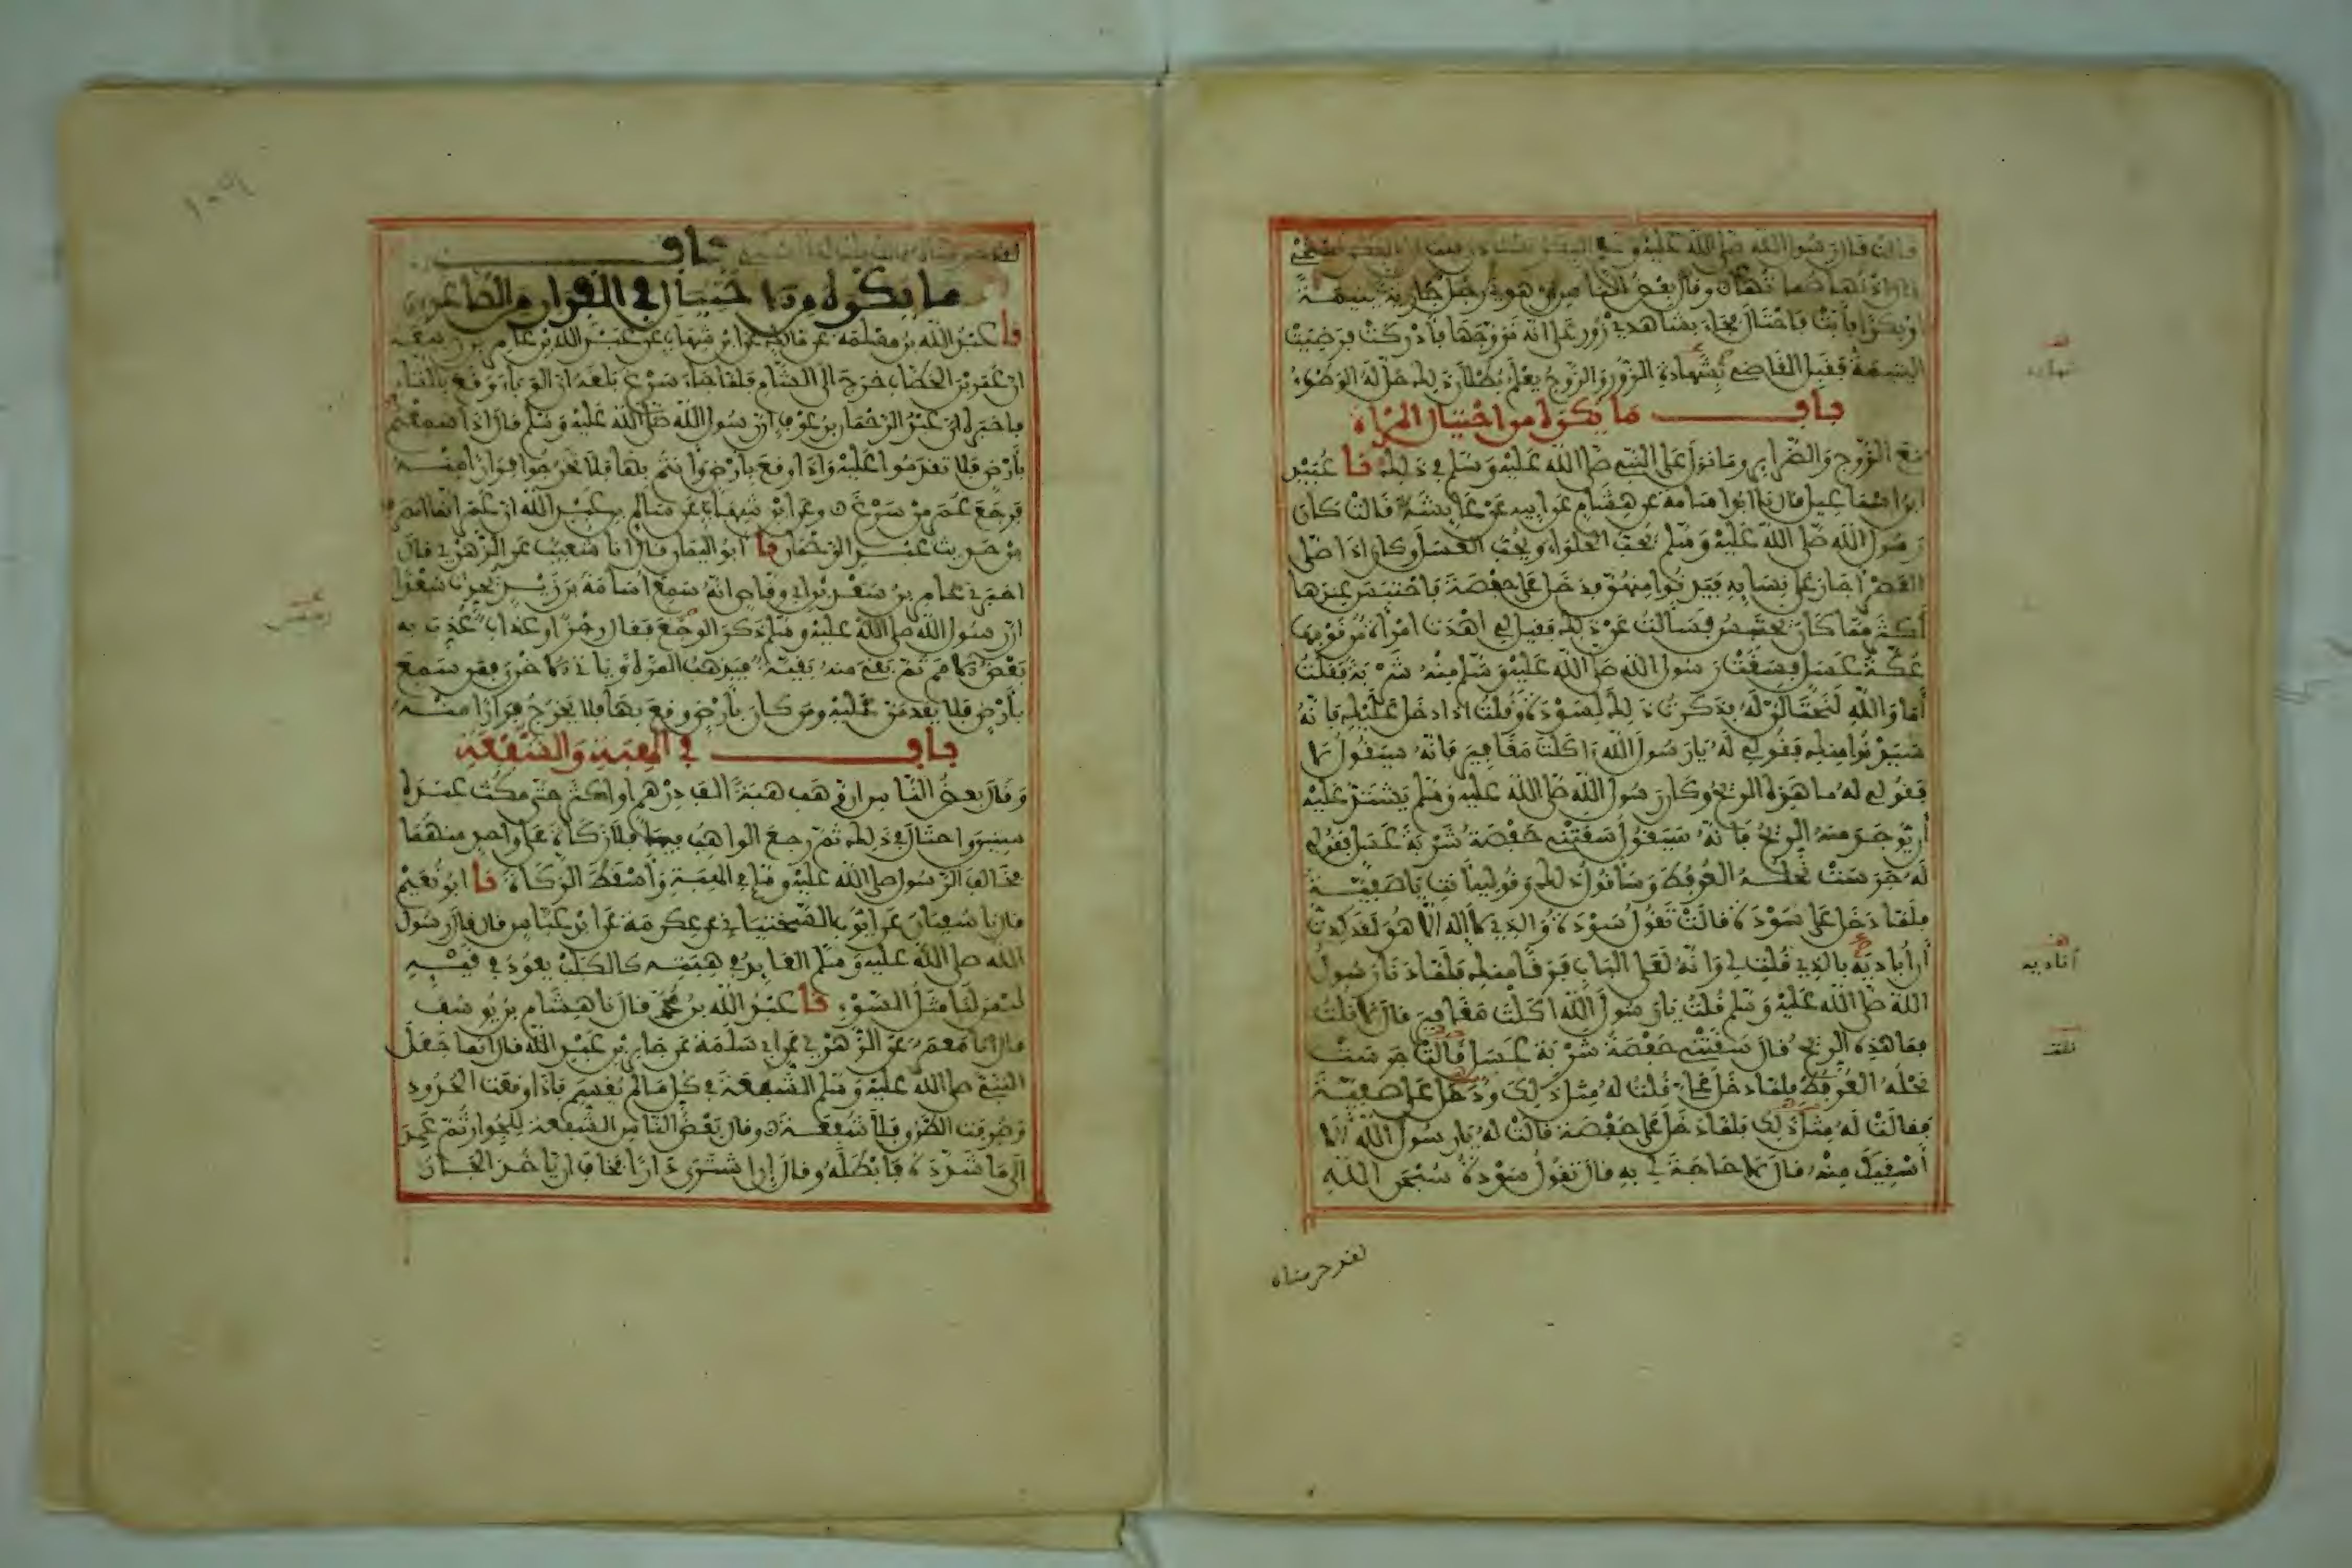 قالت قال رسول الله صلى الله عليه وسلم البكر تستأذن قلت ان البكر تستحي
قال اذنها صماتها وقال بعض الناس ان هوي رجل جارية يتيمة
او بكرا فأبت فاحتال فجاء بشاهدي زور على انه تزوجها فأدركت فرضيت
اليتيمة فقبل القاضي بشهادة الزور والزوج يعلم ببطلان ذلك حل له الوطء
باب ما يكره من احتيال المرأة
مع الزوج والضراير وما نزل على النبي صلى الله عليه وسلم في ذلك نا عبيد
ابن اسماعيل قال نا ابو اسامة عن هشام عن ابيه عن عايشة قالت كان
رسول الله صلى الله عليه وسلم يحب الحلواء ويحب العسل وكان اذا صلى
العصر اجاز على نسايه فيدنوا منهن فدخل على حفصة فاحتبس عندها
أكثر مما كان يحتبس فسألت عن ذلك فقيل لي اهدت امرأة من قومها
عكة عسل فسقت رسول الله صلى الله عليه وسلم منه شربة فقلت
أما والله لنحتالن له فذكرت ذلك لسودة وقلت اذا دخل عليك فانه
سيدنوا منك فقولي له يا رسول الله اكلت مغافير فانه سيقول لا
فقولي له ما هذه الريح وكان رسول الله صلى الله عليه وسلم يشتد عليه
أن يوجد منه الريح فانه سيقول سقتني حفصة شربة عسل فقولي
له جرست نحله العرفط وسأقول ذلك وقوليه أنت يا صفية
فلما دخل على سودة قالت تقول سودة والذي لا إله الا هو لقد كدت
أن أباديه بالذي قلت لي وانه لعلى الباب فرقا منك فلما دنا رسول
الله صلى الله عليه وسلم قلت يا رسول الله اكلت مغافير قال لا قلت
فما هذه الريح قال سقتني حفصة شربة عسل قالت جرست
نحله العرفط فلما دخل علي قلت له مثل ذلك ودخل على صفية
فقالت له مثل ذلك فلما دخل على حفصة قالت له يا رسول الله الا
أسقيك منه قال لا حاجة لي به قال تقول سودة سبحن الله
لقد حرمناه
أناديه
لقد حرمناه قالت قلت لها اسكتي باب
ما يكره من احتيال في الفرار من الطاعون
نا عبد الله بن مسلمة عن مالك عن ابن شهاب عن عبد الله بن عامر بن ربيعة
ان عمر بن الخطاب خرج الى الشام فلما جاء سرغ بلغه ان الوباء وقع بالشام
فاخبره ان عبد الرحمان بن عوف ان رسول الله صلى الله عليه وسلم قال اذا سمعتم
بأرض فلا تقدموا عليه واذا وقع بارض وانتم بها فلا تخرجوا فرارا منه
فرجع عمر من سرغ وعن ابن شهاب عن سالم بن عبد الله ان عمر انما انصرف
من حديث عبد الرحمان نا ابو اليمان قال انا شعيب عن الزهري قال
اخبرني عامر بن سعد بن ابي وقاص انه سمع اسامة بن زيد يحدث سعدا
ان رسول الله صلى الله عليه وسلم ذكر الوجع فقال رجز او عذاب عذب به
بعض الامم ثم بقي منه بقية فيذهب المرة ويأتي الاخرى فمن سمع
بأرض فلا يقدمن عليه ومن كان بأرض وقع بها فلا يخرج فرارا منه
باب في الهبة والشفعة
وقال بعض الناس ان وهب هبة الف درهم او اكثر حتى مكث عنده
سنين واحتال في ذلك ثم رجع الواهب فيها فلا زكاة على واحد منهما
فخالف الرسول صلى الله عليه وسلم في الهبة وأسقط الزكاة نا ابو نعيم
قال نا سفيان عن ايوب السختياني عن عكرمة عن ابن عباس قال قال رسول
الله صلى الله عليه وسلم العايد في هبته كالكلب يعود في قيئه
ليس لنا مثل السوء نا عبد الله بن محمد قال نا هشام بن يوسف
قال انا معمر عن الزهري عن ابي سلمة عن جابر بن عبد الله قال انما جعل
النبي صلى الله عليه وسلم الشفعة في كل ما لم يقسم فاذا وقعت الحدود
وصرفت الطرق فلا شفعة وقال بعض الناس الشفعة للجوار ثم عمد
الى ما شدده فابطله وقال ان اشترى دارا فخاف ان ياخذ الجار